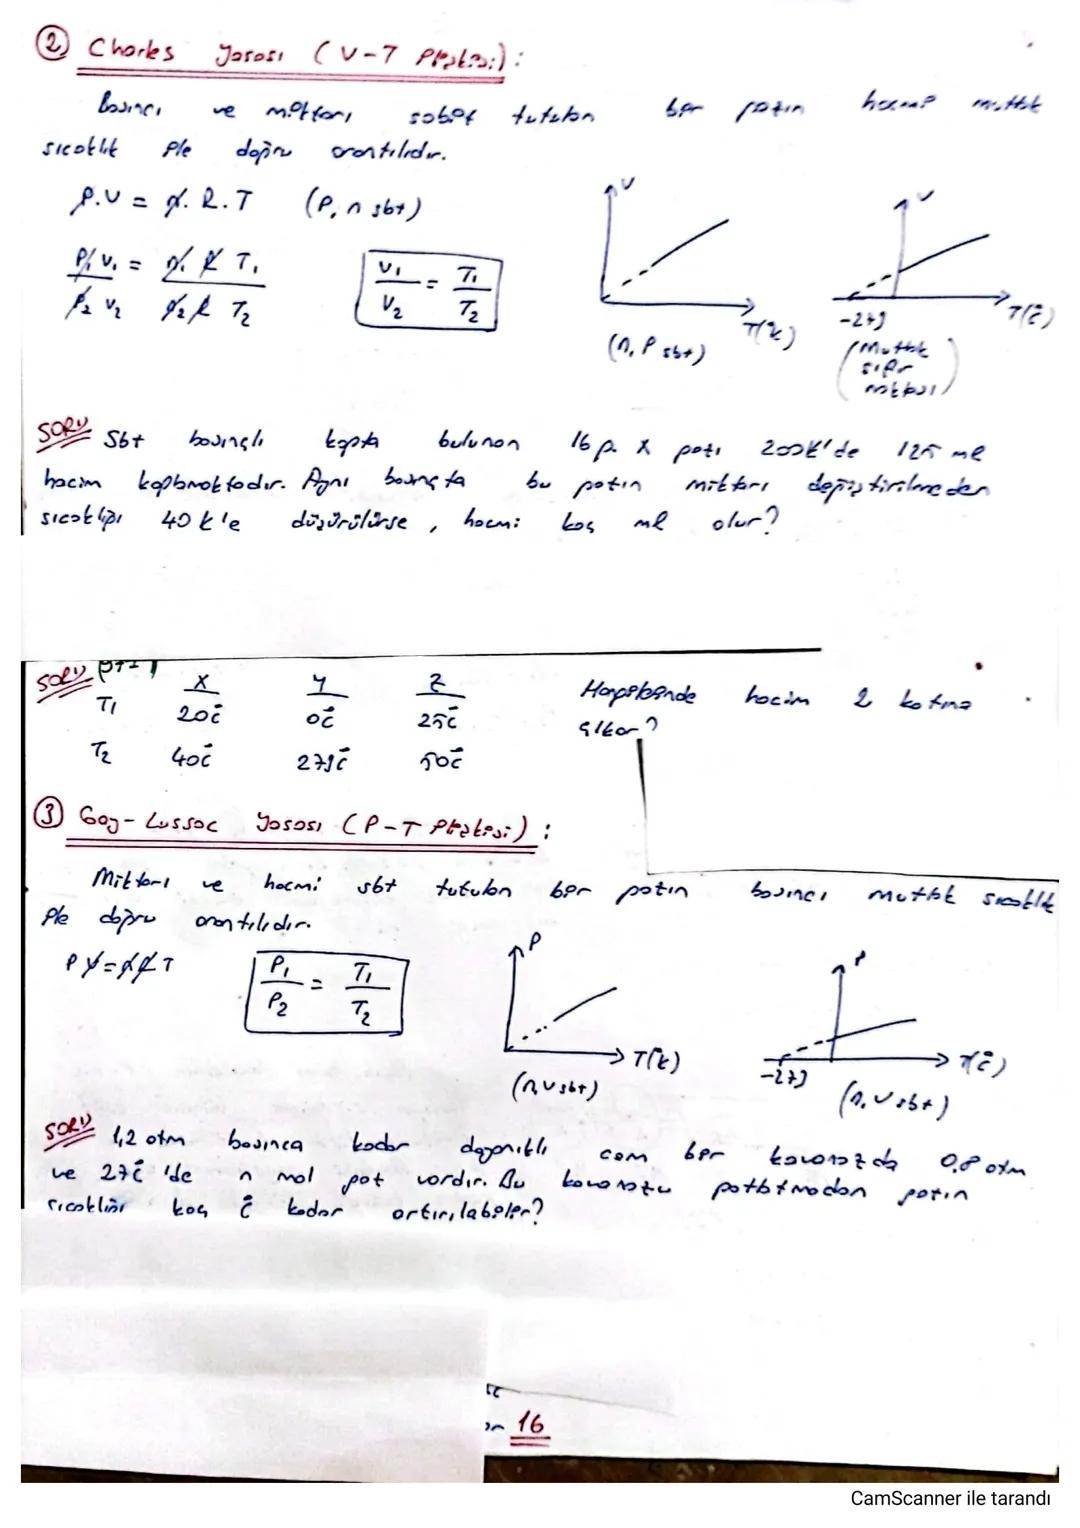 ② Charles Yasası (V-T İlişkisi):
Basıncı ve miktarı sabit tutulan bir gazın hacmi mutlak
sıcaklık ile doğru orantılıdır.
P.V = n.R.T (P, n sbt)
P₁V₁ / P₂V₂ = n₁RT₁ / n₂RT₂
V₁/V₂ = T₁/T₂
V
T(°K)
(n, P sbt)
V
T(°C)
-273
(Mutlak sıfır noktası)
SORU Sbt basınçlı kapta bulunan 16 g. X gazı 200K'de 125 ml
hacim kaplamaktadır. Aynı basınçta bu gazın miktarı değiştirilmeden
sıcaklığı 40 K'e düşürülürse, hacmi kaç ml olur?
SORU
X Y Z
T₁ 20°C 0°C 25°C
T₂ 40°C 273°C 50°C
Hangilerinde hacim 2 katına
çıkar?
③ Gay-Lussac Yasası (P-T İlişkisi):
Miktarı ve hacmi sbt tutulan bir gazın basıncı mutlak sıcaklık
ile doğru orantılıdır.
PV=nRT
P₁/P₂ = T₁/T₂
P
T(°K)
(n, V sbt)
P
T(°C)
-273
(n, V sbt)
SORU 1,2 atm basınca kadar dayanıklı cam bir kavanozda 0,8 atm
ve 27°C 'de n mol gaz vardır. Bu kavanozu patlatmadan gazın
sıcaklığı kaç °C kadar artırılabilir?
16
CamScanner ile tarandı